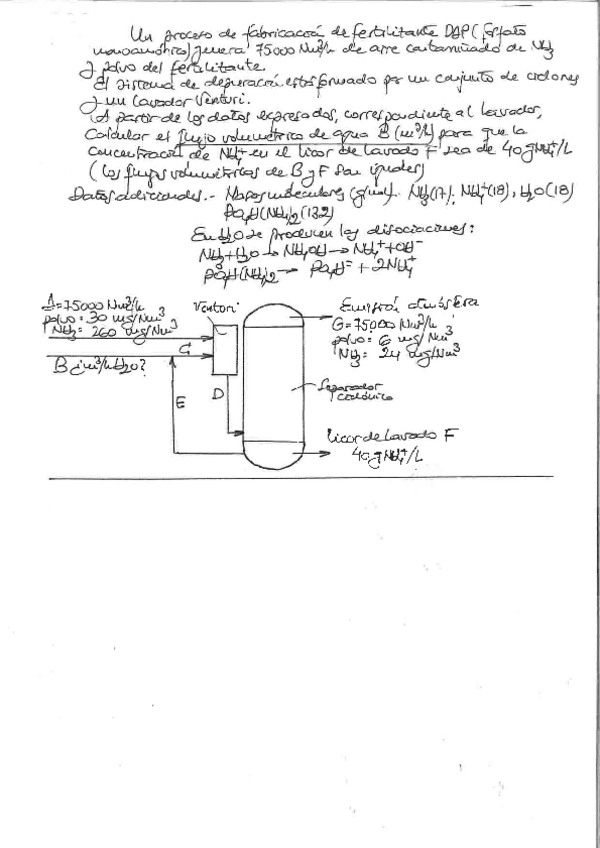 Un proceso de fabricación de fertilizante DAP (fosfato
monoamónico) genera 75000 Nm³/h de aire contaminado de NH3
y polvo del fertilizante.
El sistema de depuración está formado por un conjunto de ciclones
y un lavador Venturi.
A partir de los datos expresados, correspondiente al lavador,
Calcular el flujo volumétrico de agua B (m³/h) para que la
concentración de NH4+ en el licor de lavado F sea de 40 g NH4+/L
(los flujos volumétricos de B y F son iguales)
Datos adicionales.- Masas moleculares (g/mol). NH3 (17), NH4+ (18), H2O (18)
PO4H(NH4)2 (132)
En H2O se producen las disociaciones:
NH3 + H2O → NH4OH → NH4+ + OH-
PO4H(NH4)2 → PO4H= + 2NH4+
A=75000 Nm³/h
polvo = 30 mg/Nm³
NH3 = 260 mg/Nm³
Venturi
Emisión atmósfera
G=75000 Nm³/h
polvo = 6 mg/Nm³
NH3 = 24 mg/Nm³
C
B ¿m³/h H2O?
E
D
Separador
ciclónico
licor de lavado F
40 g NH4+/L